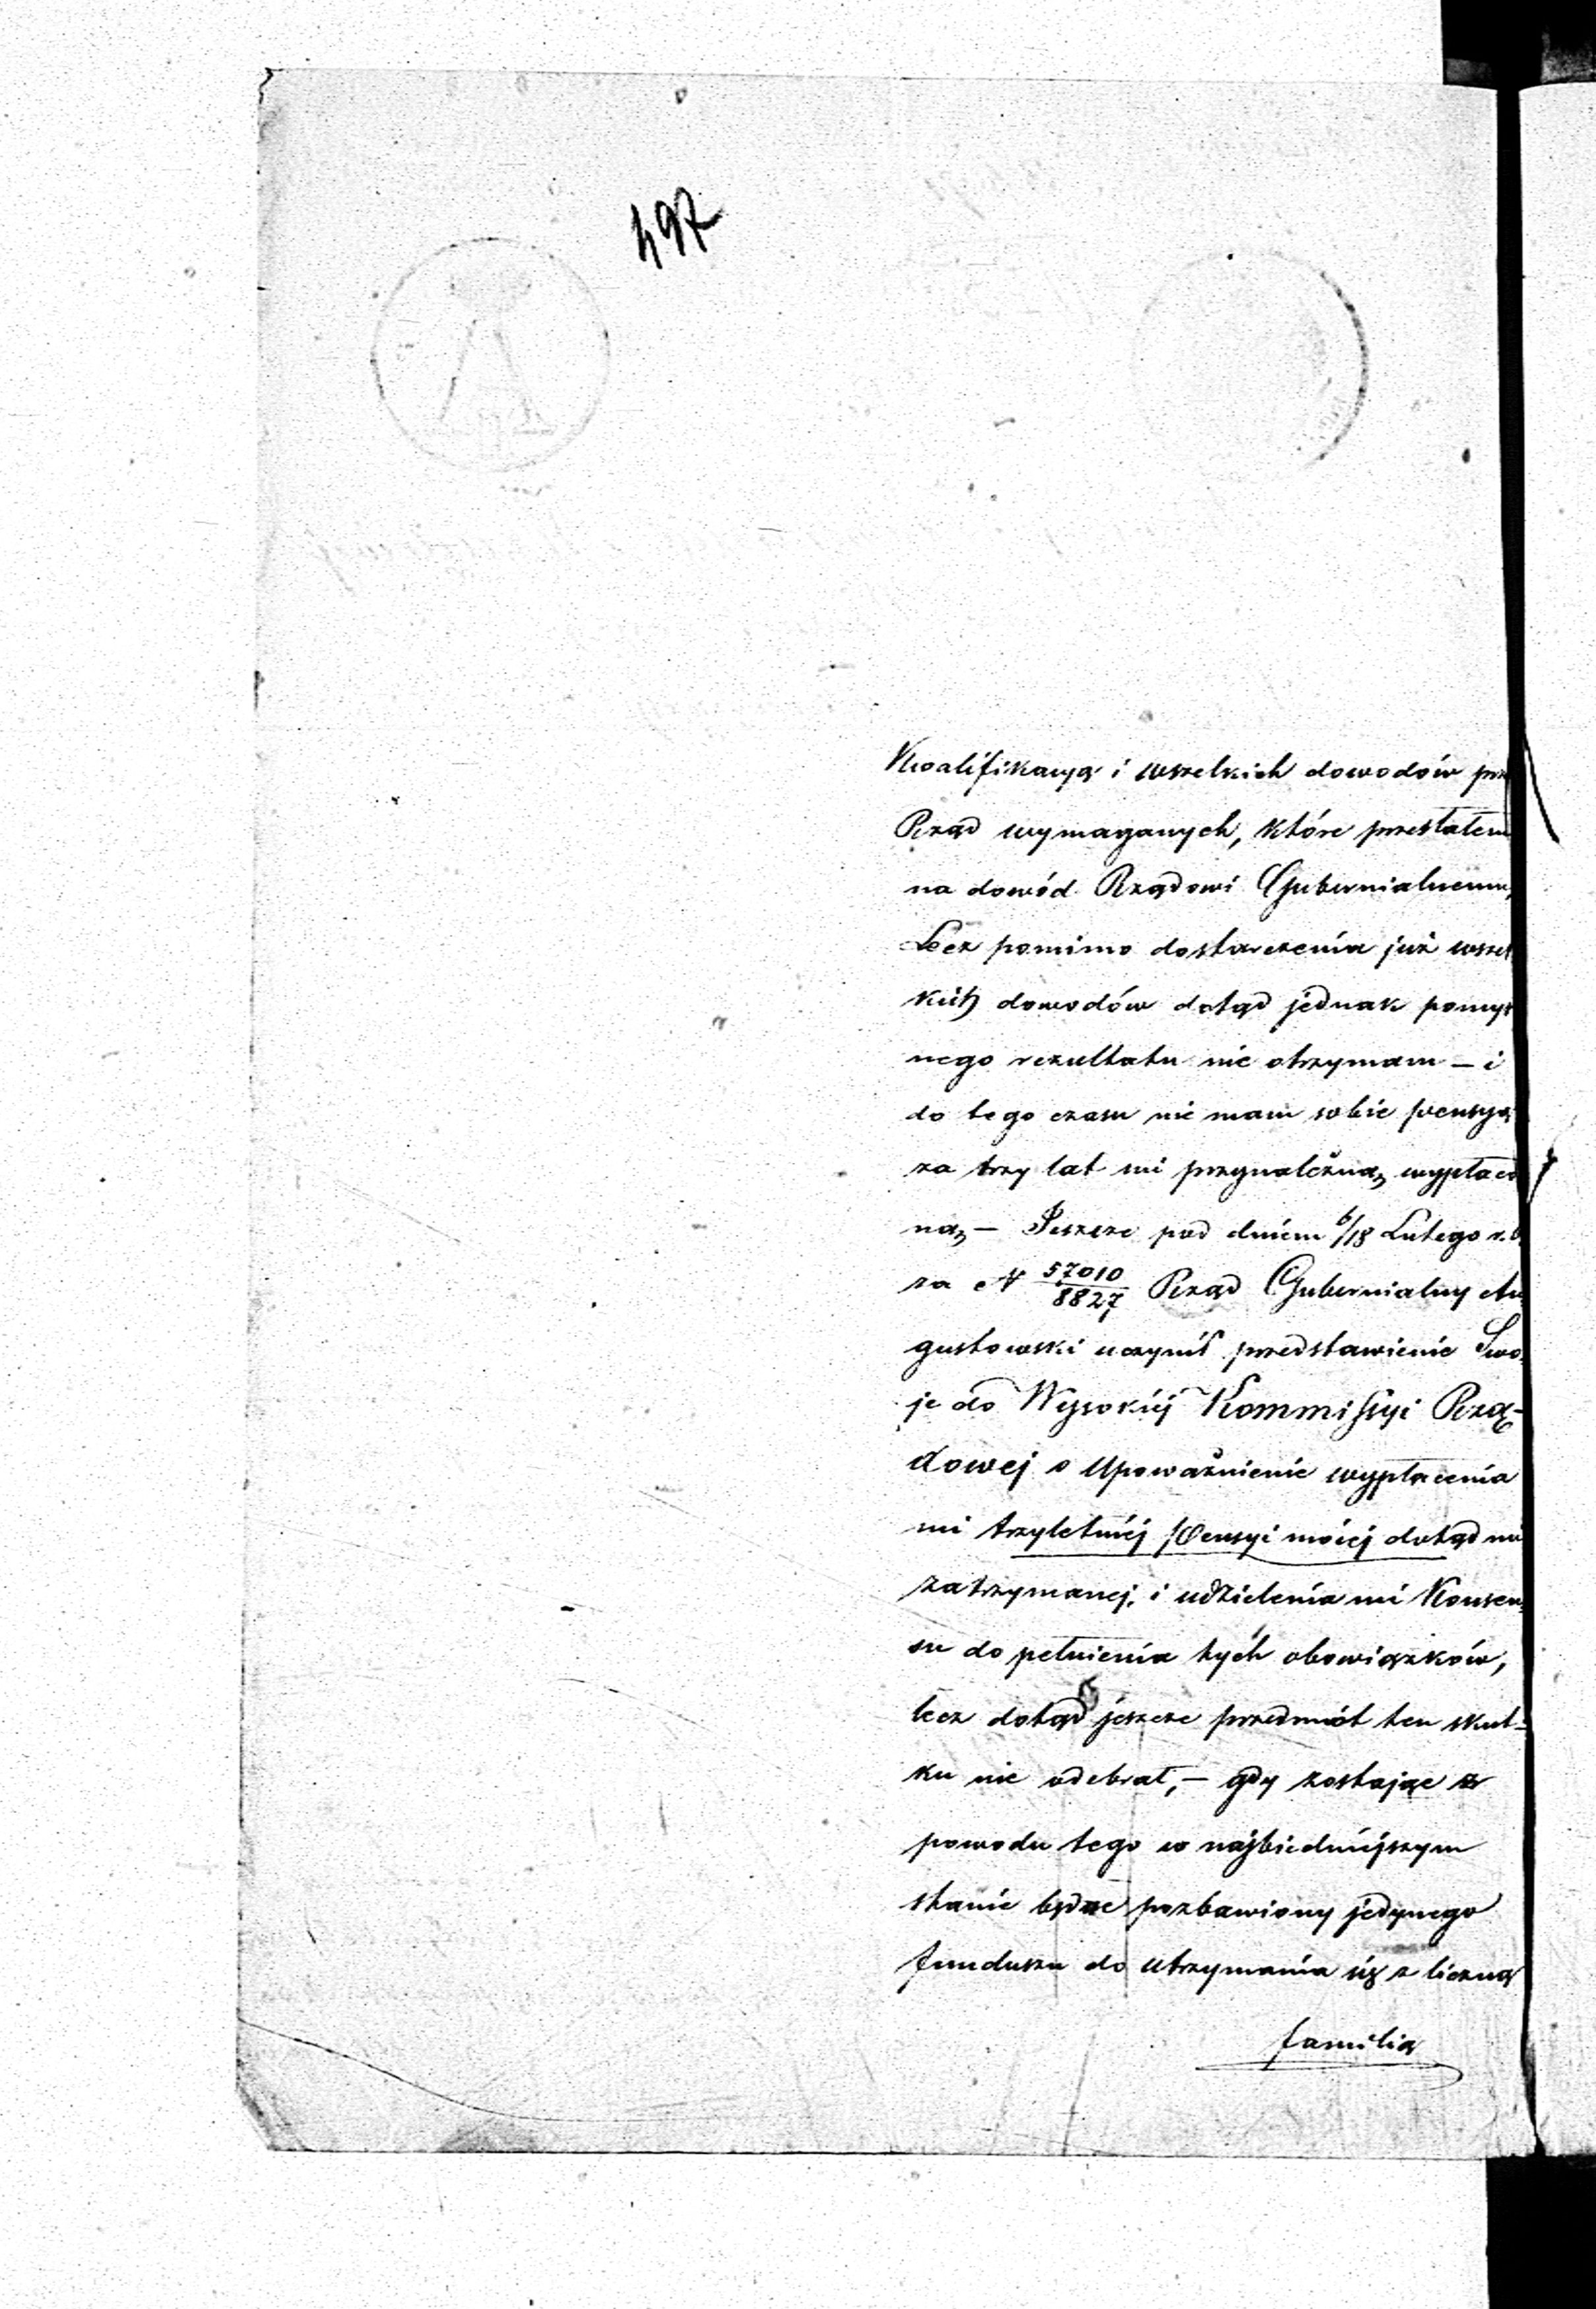 497
Kwalifikacyą i wszelkich dowodów prz
Rząd wymaganych, które przesłałem
na dowód Rządowi Gubernialnemu,
Lecz pomimo dostarczenia już wszel
kich dowodów dotąd jednak pomyś
nego rezultatu nie otrzymam – i
do tego czasu nie mam sobie pensyą
za trzy lat mi przynależną wypłaco
ną, – Jeszcze pod dniem 6/18 Lutego r. b.
za N 57010/8827 Rząd Gubernialny Au
gustowski uczynił przedstawienie Swo
je do Wysokiéj Kommissyi Rzą-
dowej o upoważnienie wypłacenia
mi trzyletniéj Pensyi moiej dotąd mi
zatrzymanej, i udzielenia mi Konsen
su do pełnienia tych obowiązków,
lecz dotąd jeszcze przedmiot ten skut-
ku nie odebrał, – gdy zostając z
powodu tego w najbiedniejszym
stanie będąc pozbawiony jedynego
funduszu do utrzymania się z liczną
familią